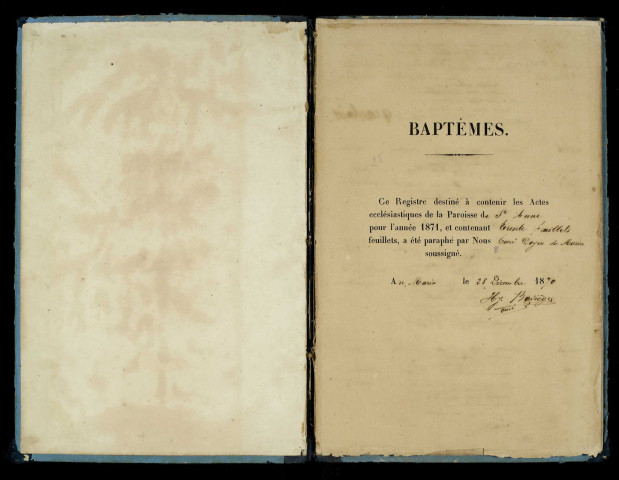 BAPTÊMES.
Ce Registre destiné à contenir les Actes
ecclésiastiques de la Paroisse de Ste Anne
pour l'année 1871, et contenant trente feuillets
feuillets, a été paraphé par Nous Curé Doyen du Marin
soussigné.
A u Marin le 28 Décembre 1870
Curé